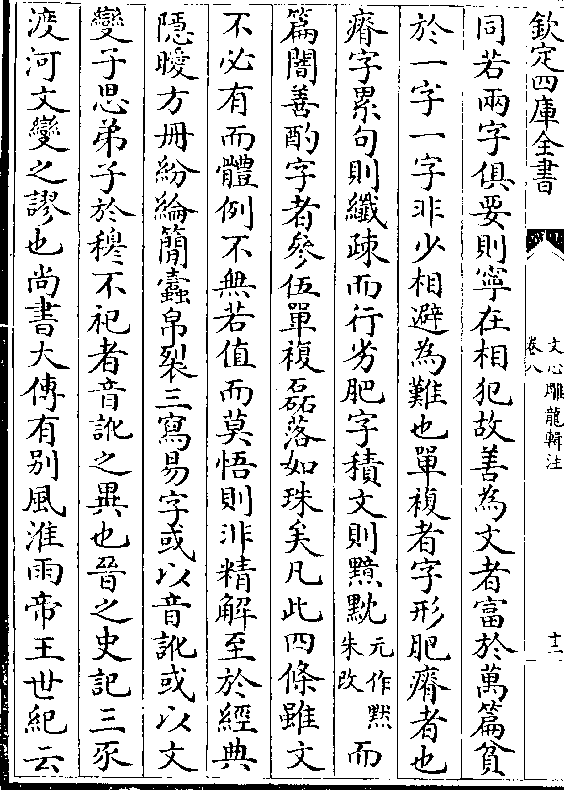 欽定四庫全書
文心雕龍輯注
卷八
十二
同若兩字俱要則寧在相犯故善為文者富於萬篇貧
於一字一字非少相避為難也單複者字形肥瘠者也
瘠字累句則纖疎而行劣肥字積文則黯黕元作黙朱改而
篇闇善酌字者參伍單複磊落如珠矣凡此四條雖文
不必有而體例不無若值而莫悟則非精解至於經典
隱曖方冊紛綸簡蠹帛裂三寫易字或以音訛或以文
變子思弟子於穆不祀者音訛之異也晉之史記三豕
渡河文變之謬也尚書大傳有别風淮雨帝王世紀云